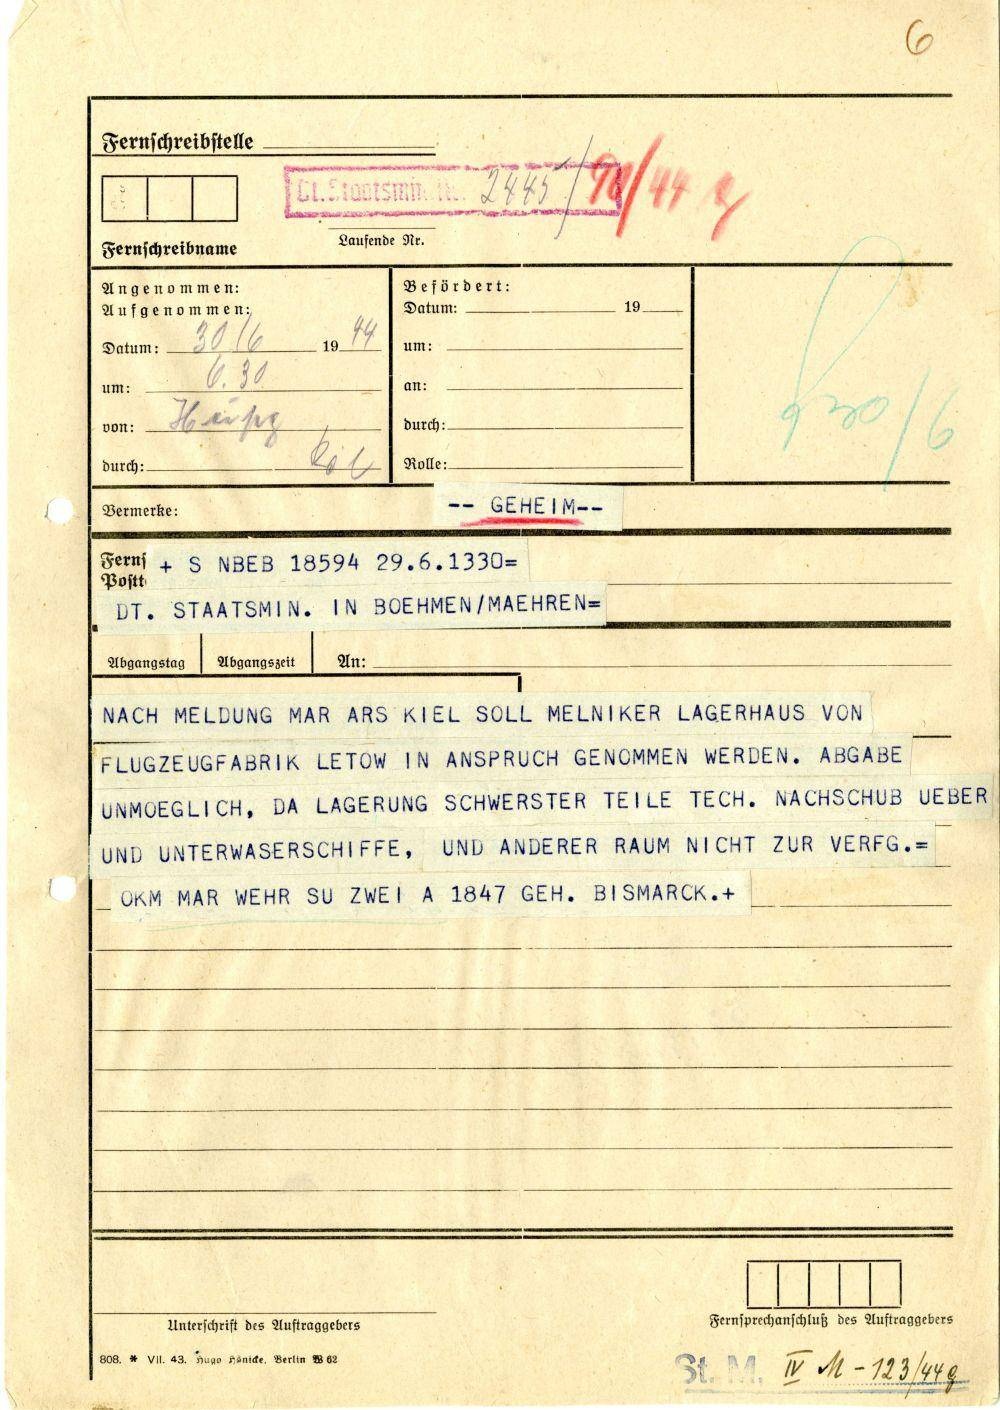 6
Fernschreibstelle
Dt. Staatsmin. Nr. 2445/ 44 g
Laufende Nr.
Fernschreibname
Angenommen:
Aufgenommen:
Datum: 30/6 19 44
um: 6.30
von:
durch:
Befördert:
Datum: 19
um:
an:
durch:
Rolle:
Vermerke:
-- GEHEIM--
Ferns
Postt
+ S NBEB 18594 29.6.1330=
DT. STAATSMIN. IN BOEHMEN/MAEHREN=
Abgangstag Abgangszeit An:
NACH MELDUNG MAR ARS KIEL SOLL MELNIKER LAGERHAUS VON
FLUGZEUGFABRIK LETOW IN ANSPRUCH GENOMMEN WERDEN. ABGABE
UNMOEGLICH, DA LAGERUNG SCHWERSTER TEILE TECH. NACHSCHUB UEBER
UND UNTERWASERSCHIFFE, UND ANDERER RAUM NICHT ZUR VERFG.=
OKM MAR WEHR SU ZWEI A 1847 GEH. BISMARCK.+
Unterschrift des Auftraggebers
Fernsprechanschluß des Auftraggebers
808. * VII. 43. Hugo Hänicke, Berlin W 62
St. M. IV M - 123/44g